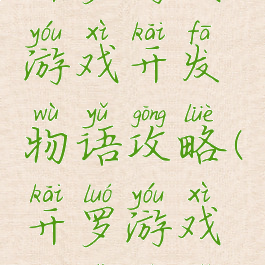 yóu xì kāi fā
游戏开发
wù yǔ gōng lüè
物语攻略(
kāi luó yóu xì
开罗游戏